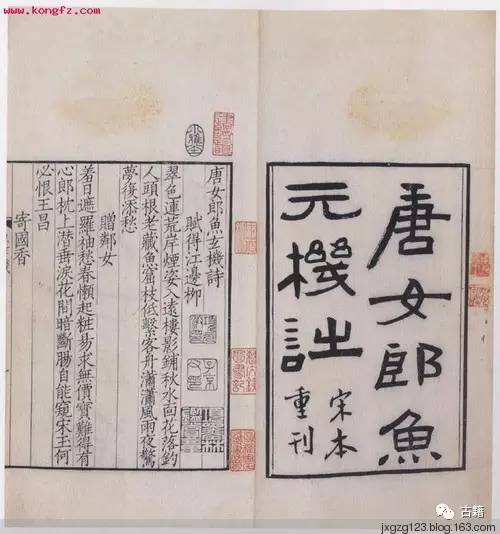 www.kongfz.com
唐女郎魚
元機詩
宋本
重刊
唐女郎魚玄機詩
賦得江邊柳
翠色連荒岸煙姿入遠樓影鋪秋水面花落釣
人頭根老藏魚窟枝低繫客舟瀟瀟風雨夜驚
夢復添愁
贈鄰女
羞日遮羅袖愁春懶起粧易求無價寶難得有
心郎枕上潛垂淚花間暗斷腸自能窺宋玉何
必恨王昌
寄國香
古籍
jxgzg123.blog.163.com